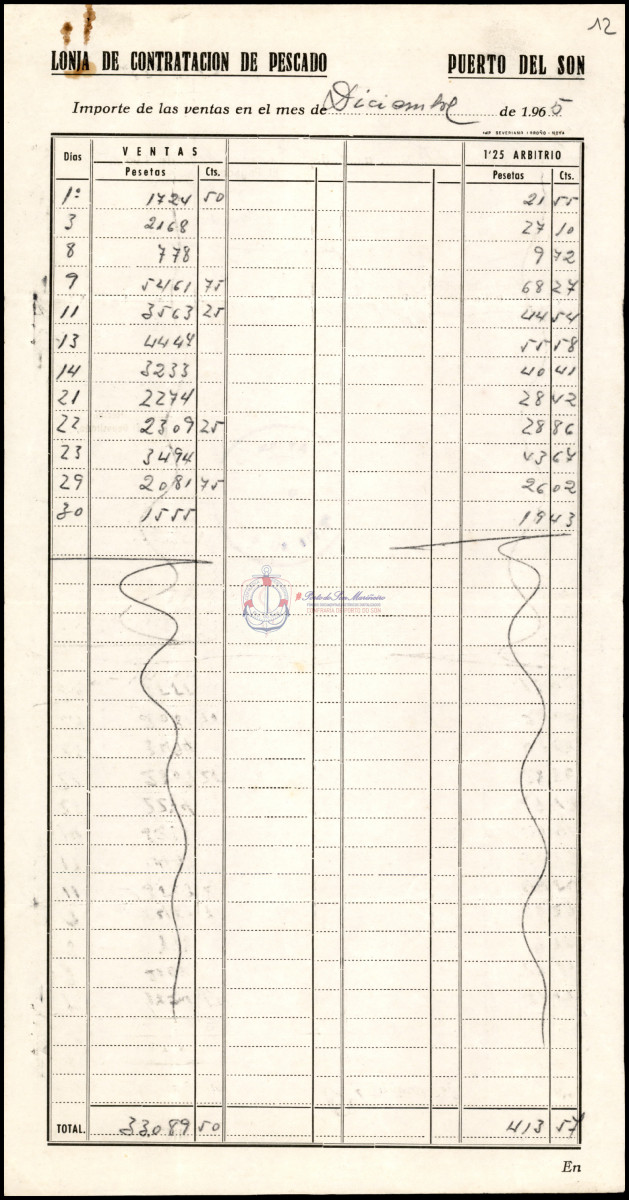 12
LONJA DE CONTRATACION DE PESCADO PUERTO DEL SON
Importe de las ventas en el mes de Diciembre de 1.965
Dias VENTAS 1'25 ARBITRIO
Pesetas Cts. Pesetas Cts.
1º 1724 50 21 55
3 2168 27 10
8 778 9 72
9 5461 75 68 27
11 3563 25 44 54
13 4447 55 58
14 3233 40 41
21 2274 28 42
22 2309 25 28 86
23 3494 43 67
29 2081 75 26 02
30 1555 19 43
Porto do Son Mariñeiro
CONFRARÍA DE PORTO DO SON
TOTAL. 33089 50 413 57
En